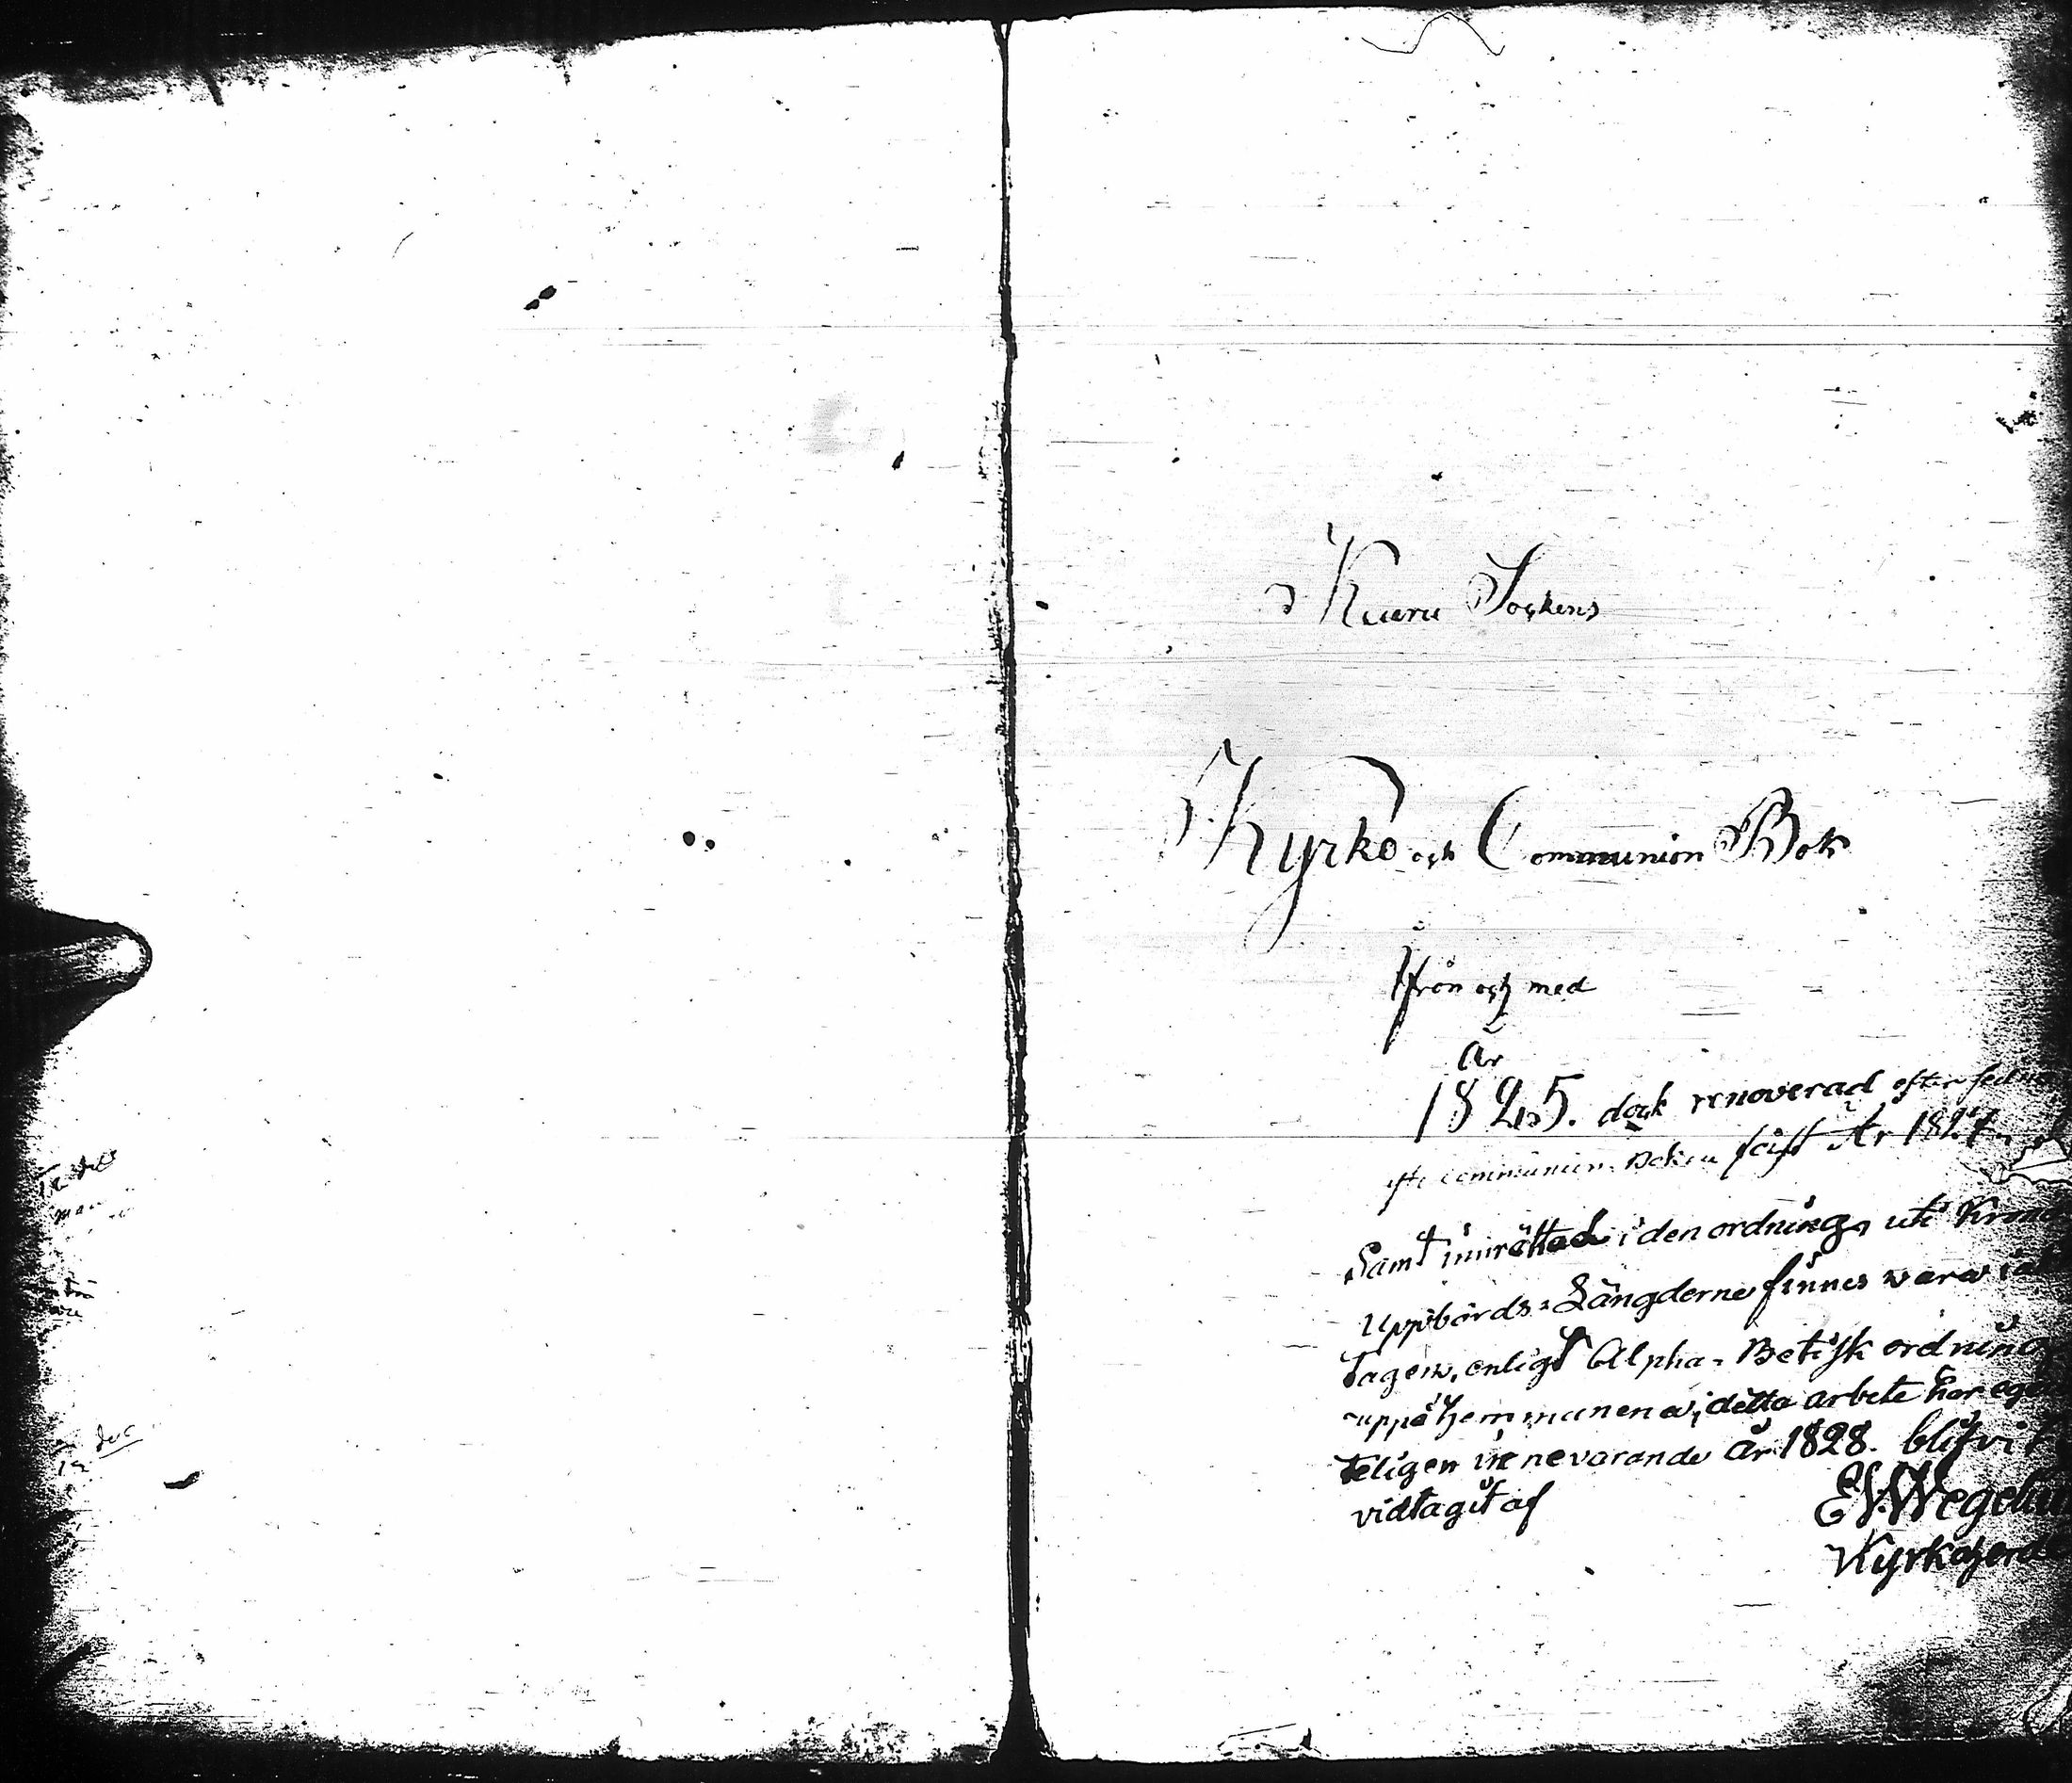 Kuru Sockens
Kyrko och Communion Bok
Ifrån och med
År
1825. dock renoverad efter
Communion Boken År 1827
Samt inrättad i den ordning, uti Krono
Uppbörds-Längderne finnes wara
tagen, enligt Alpha-Betisk ordning
uppå Hemmanena; detta arbete har egen
teligen innevarande år 1828. blifvit
vidtagit af
E. Wegelius
Kyrkoherde